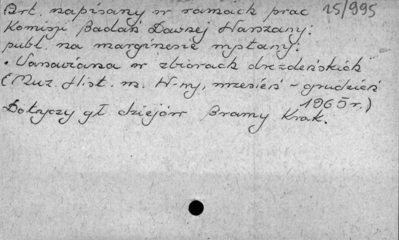 Art. napisany w ramach prac 25/995
Komisji Badań Dawnej Warszawy.
publ. na marginesie wystawy:
"Varsaviana w zbiorach drezdeńskich"
(Muz. Hist. m. W-wy, wrzesień - grudzień
1965 r.)
Dotyczy gł. dziejów Bramy Krak.